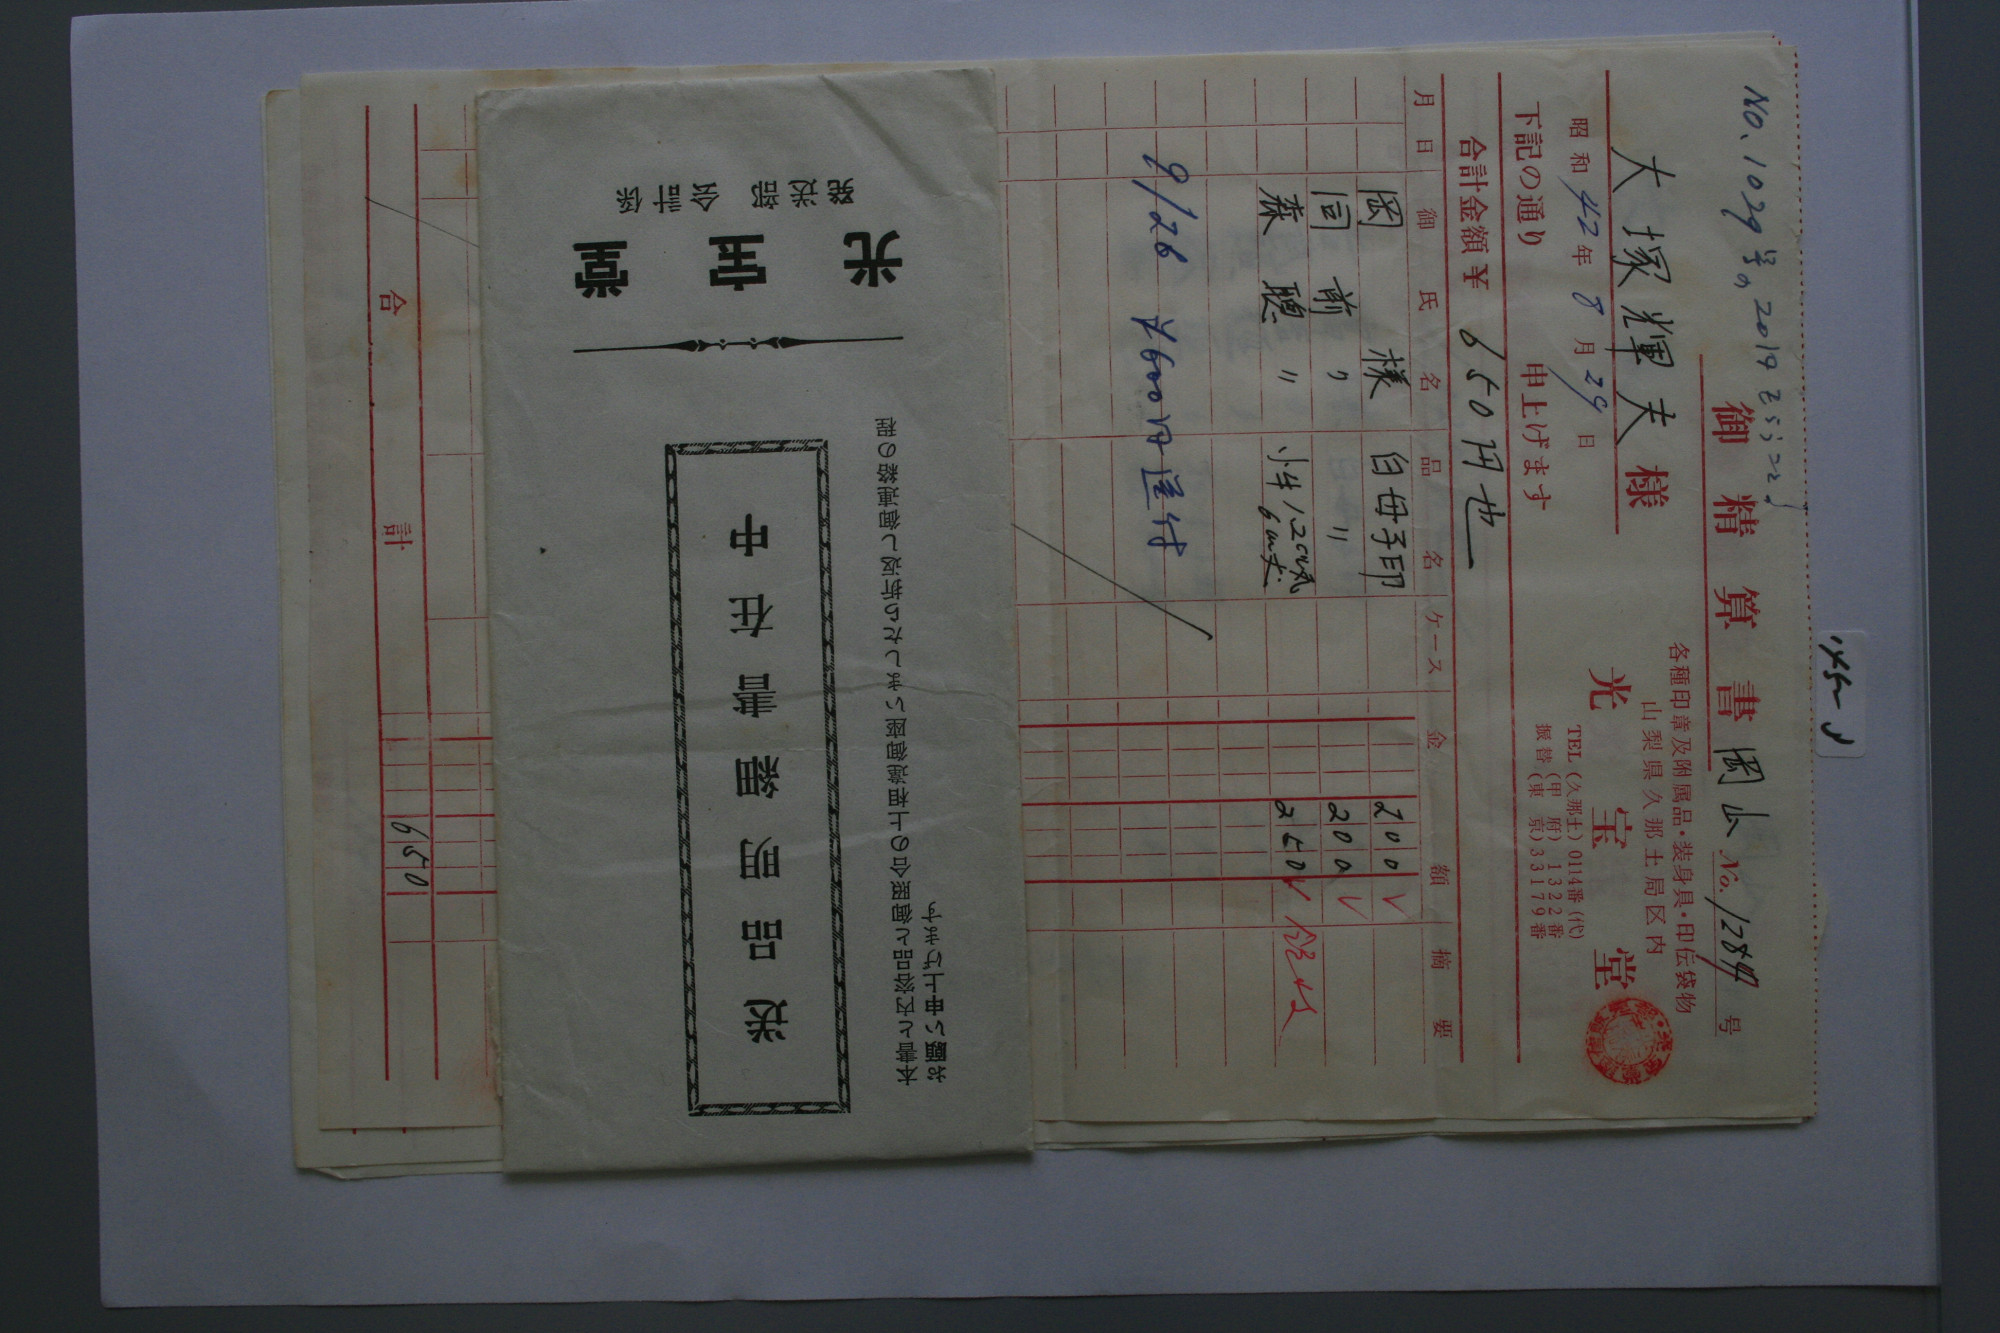 No. 1029
御精算書 岡山 No. 12849号
大塚輝夫様
昭和42年8月29日
各種印章及附属品・装身具・印伝袋物
山梨県久那土局区内
光宝堂
TEL(久那土)0114番(代)
(甲府)1322番
振替(東京)33179番
下記の通り 申上げます
合計金額¥ 650円也
月 日 御氏名 品名 ケース 金額 摘要
岡 様 白毋子印 200
同 前 〃 〃 200
森 聰 〃 小牛 250
9/26 ¥600円送付
合計 650
光宝堂
発送部 会計係
送品明細書在中
本書と内容品と御照合の上相違御座いましたら折返し御連絡の程
お願い申上げます